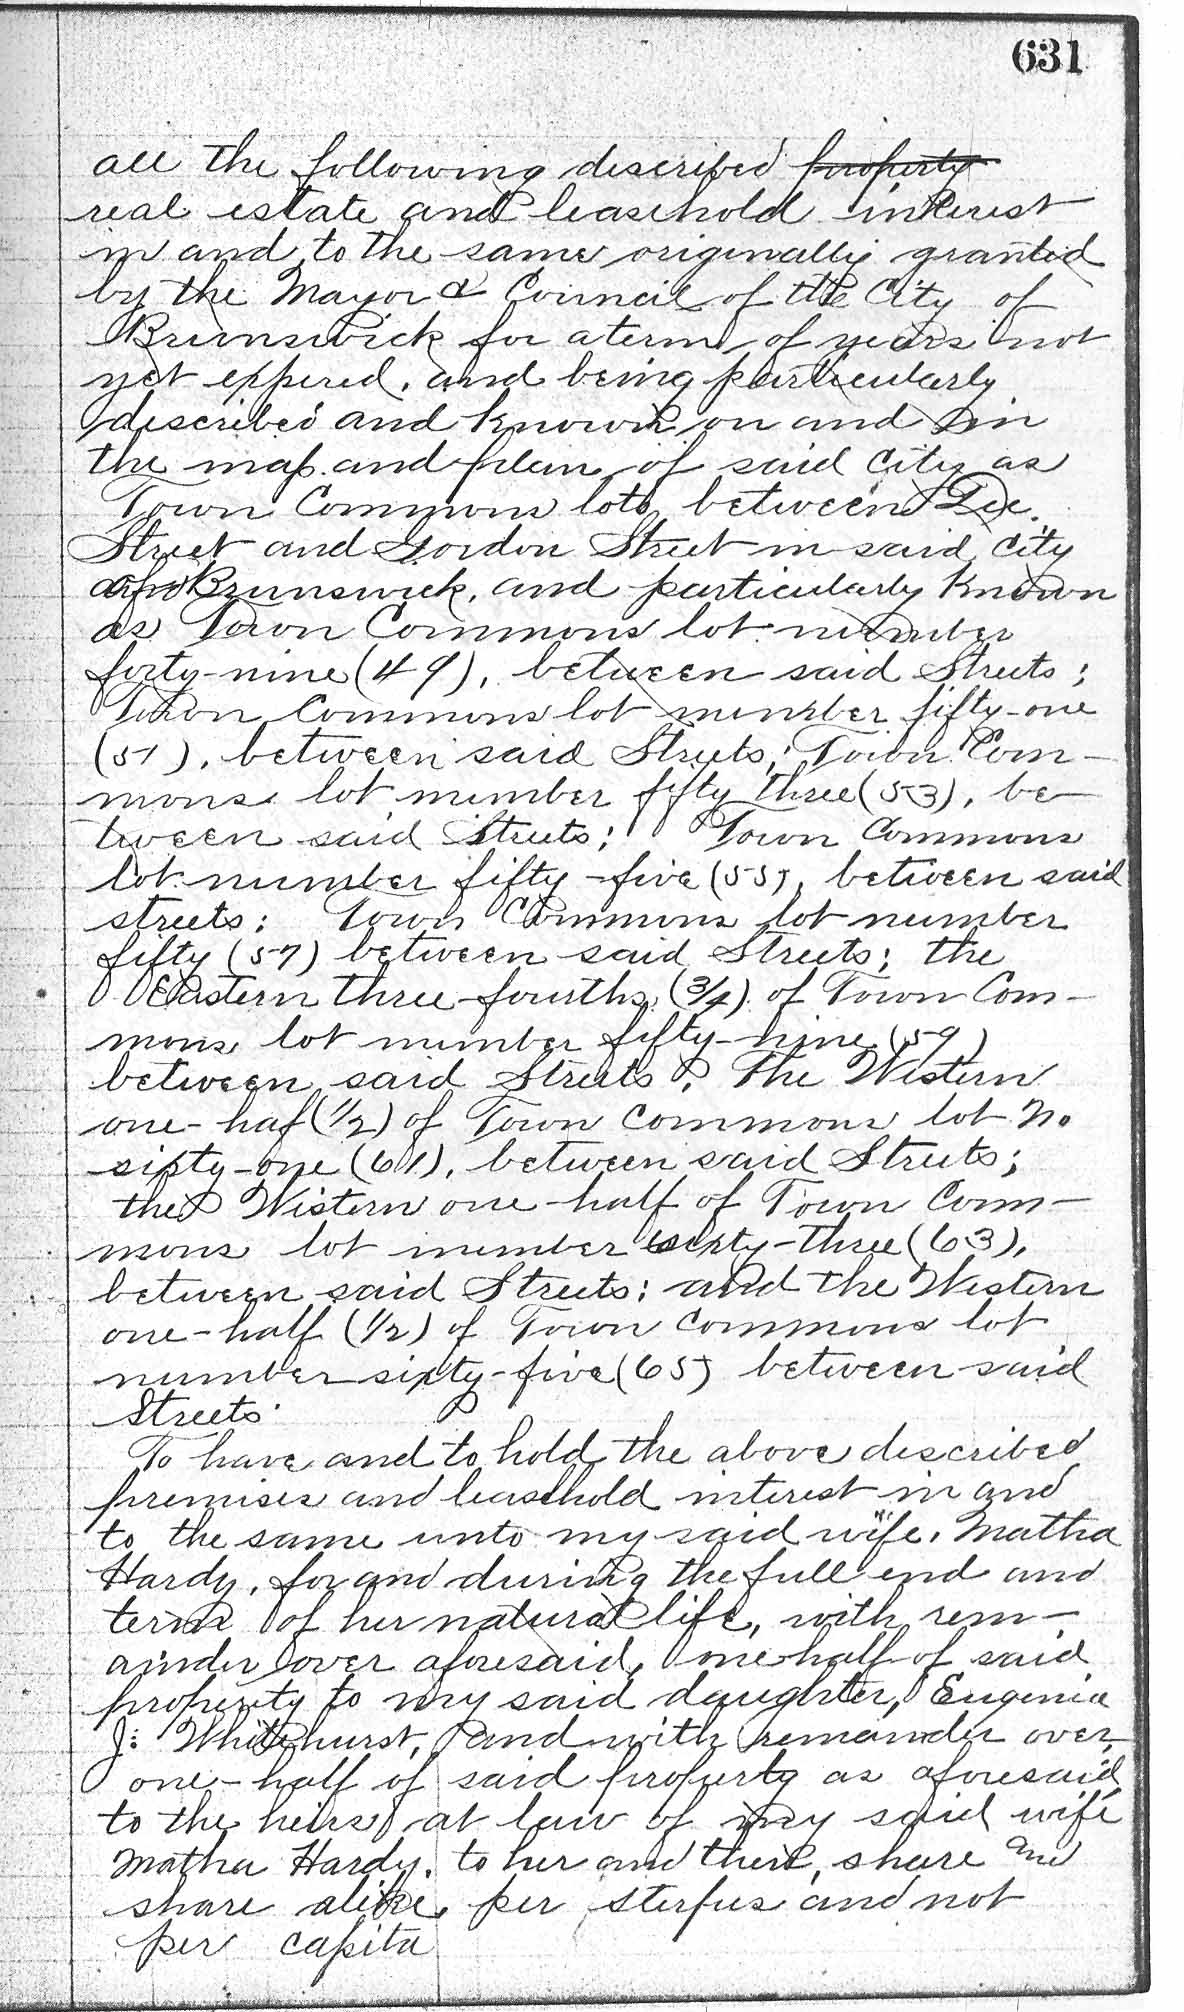 631
all the following described property
real estate and leasehold interest
in and to the same originally granted
by the Mayor & Council of the City of
Brunswick for a term of years not
yet expired, and being particularly
described and known on and in
the map and plan of said city as
Town Commons lots between Lee
Street and Gordon Street in said city
of Brunswick, and particularly known
as Town Commons lot number
forty-nine (49), between said Streets;
Town Commons lot number fifty-one
(51), between said Streets; Town Com-
mons lot number fifty three (53), be-
tween said Streets; Town Commons
lot number fifty-five (55), between said
streets; Town Commons lot number
fifty (57) between said Streets; the
Eastern three-fourths (3/4) of Town Com-
mons lot number fifty-nine (59)
between said Streets; The Western
one-haf (1/2) of Town Commons lot No
sixty-one (61), between said Streets;
the Western one-half of Town Com-
mons lot number sixty-three (63),
between said Streets; and the Western
one-half (1/2) of Town Commons lot
number sixty-five (65) between said
Streets.
To have and to hold the above described
premises and leasehold interest in and
to the same unto my said wife, Matha
Hardy, for and during the full end and
term of her natural life, with rem-
ainder over aforesaid, one half of said
property to my said daughter, Eugenia
J. Whitehurst, and with remander over,
one-half of said property as aforesaid
to the heirs at law of my said wife
Matha Hardy, to her and their, share and
share alike, per sterpus and not
per capita